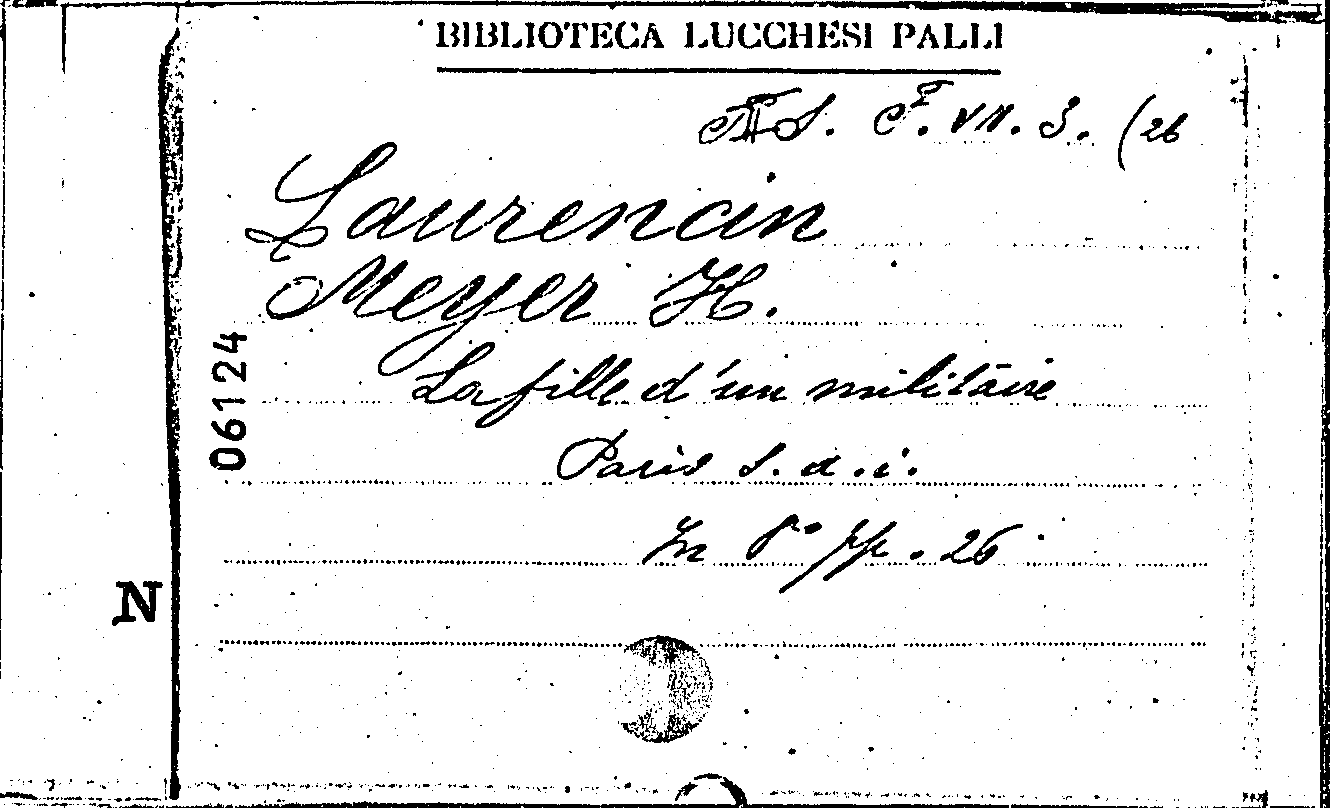 BIBLIOTECA LUCCHESI PALLI
F. VII. 3. (26
Laurencin
Meyer H.
La fille d'un militaire
Paris s. d. i.
In 8º pp. 26
06124
N